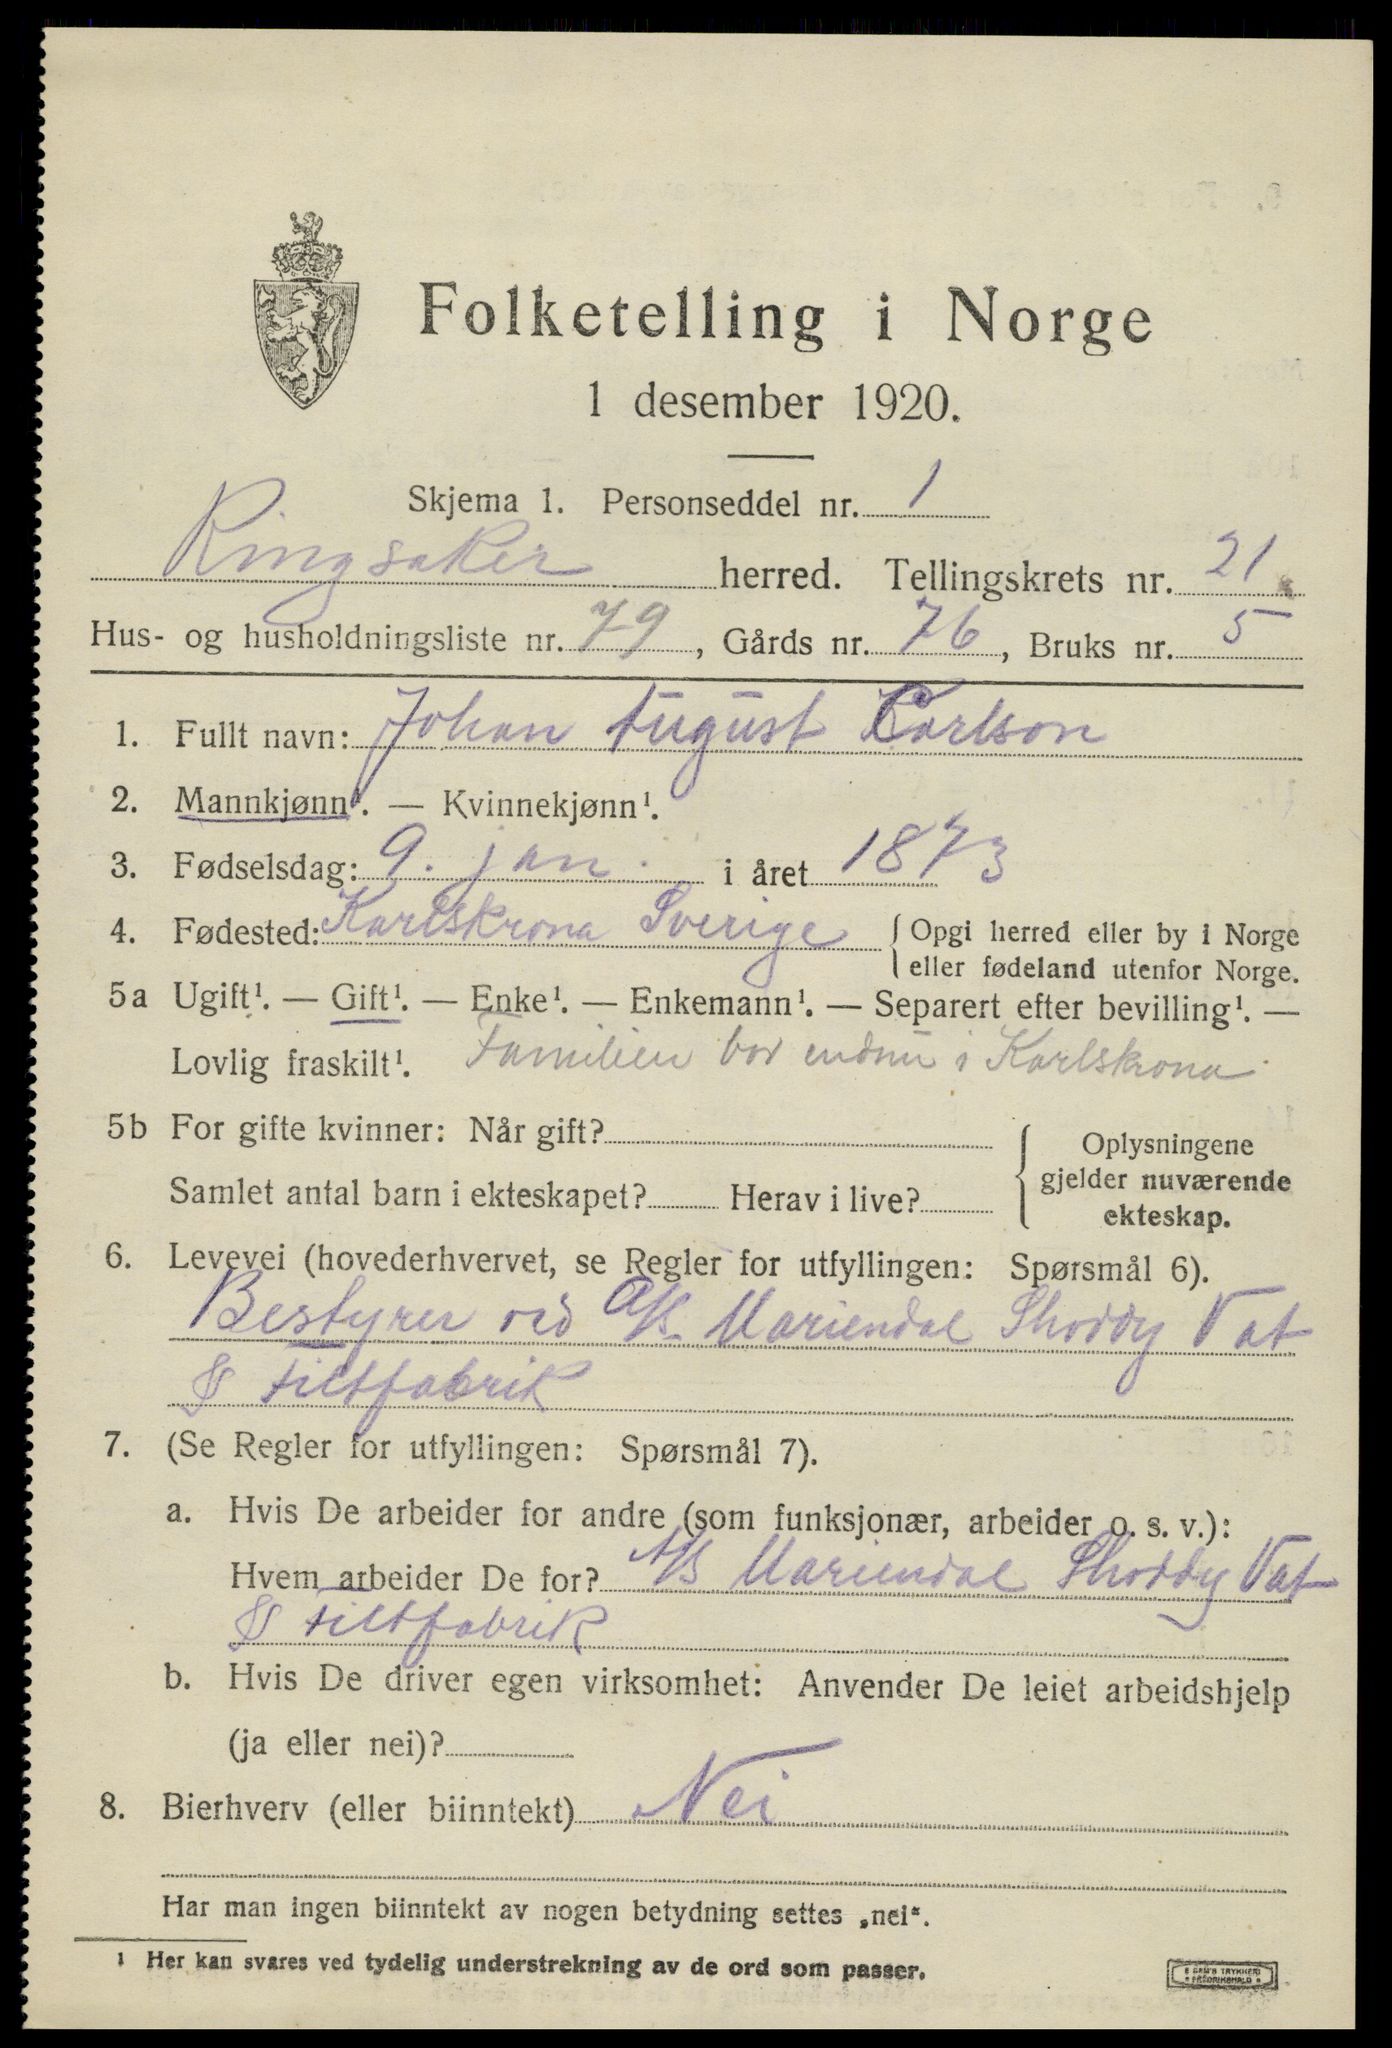 Folketelling i Norge
1 desember 1920.
Skjema 1. Personseddel nr. 1
Ringsaker herred. Tellingskrets nr. 21
Hus- og husholdningsliste nr. 79, Gårds nr. 76, Bruks nr. 5
1. Fullt navn: Johan August Carlson
2. Mannkjønn¹. — Kvinnekjønn¹.
3. Fødselsdag: 9. jan. i året 1873
4. Fødested: Karlskrona Sverige { Opgi herred eller by i Norge
eller fødeland utenfor Norge.
5a Ugift¹. — Gift¹. — Enke¹. — Enkemann¹. — Separert efter bevilling¹. —
Lovlig fraskilt¹. Familien bor endnu i Karlskrona
5b For gifte kvinner: Når gift?
Samlet antal barn i ekteskapet? Herav i live?
{ Oplysningene
gjelder nuværende
ekteskap.
6. Levevei (hovederhvervet, se Regler for utfyllingen: Spørsmål 6).
Bestyrer ved A/S Mariendal Shoddy Vat
& Filtfabrik
7. (Se Regler for utfyllingen: Spørsmål 7).
a. Hvis De arbeider for andre (som funksjonær, arbeider o. s. v.):
Hvem arbeider De for? A/S Mariendal Shoddy Vat
& Filtfabrik
b. Hvis De driver egen virksomhet: Anvender De leiet arbeidshjelp
(ja eller nei)?
8. Bierhverv (eller biinntekt) Nei
Har man ingen biinntekt av nogen betydning settes „nei“.
¹ Her kan svares ved tydelig understrekning av de ord som passer.
E SEM'S TRYKKERI
FREDRIKSHALD